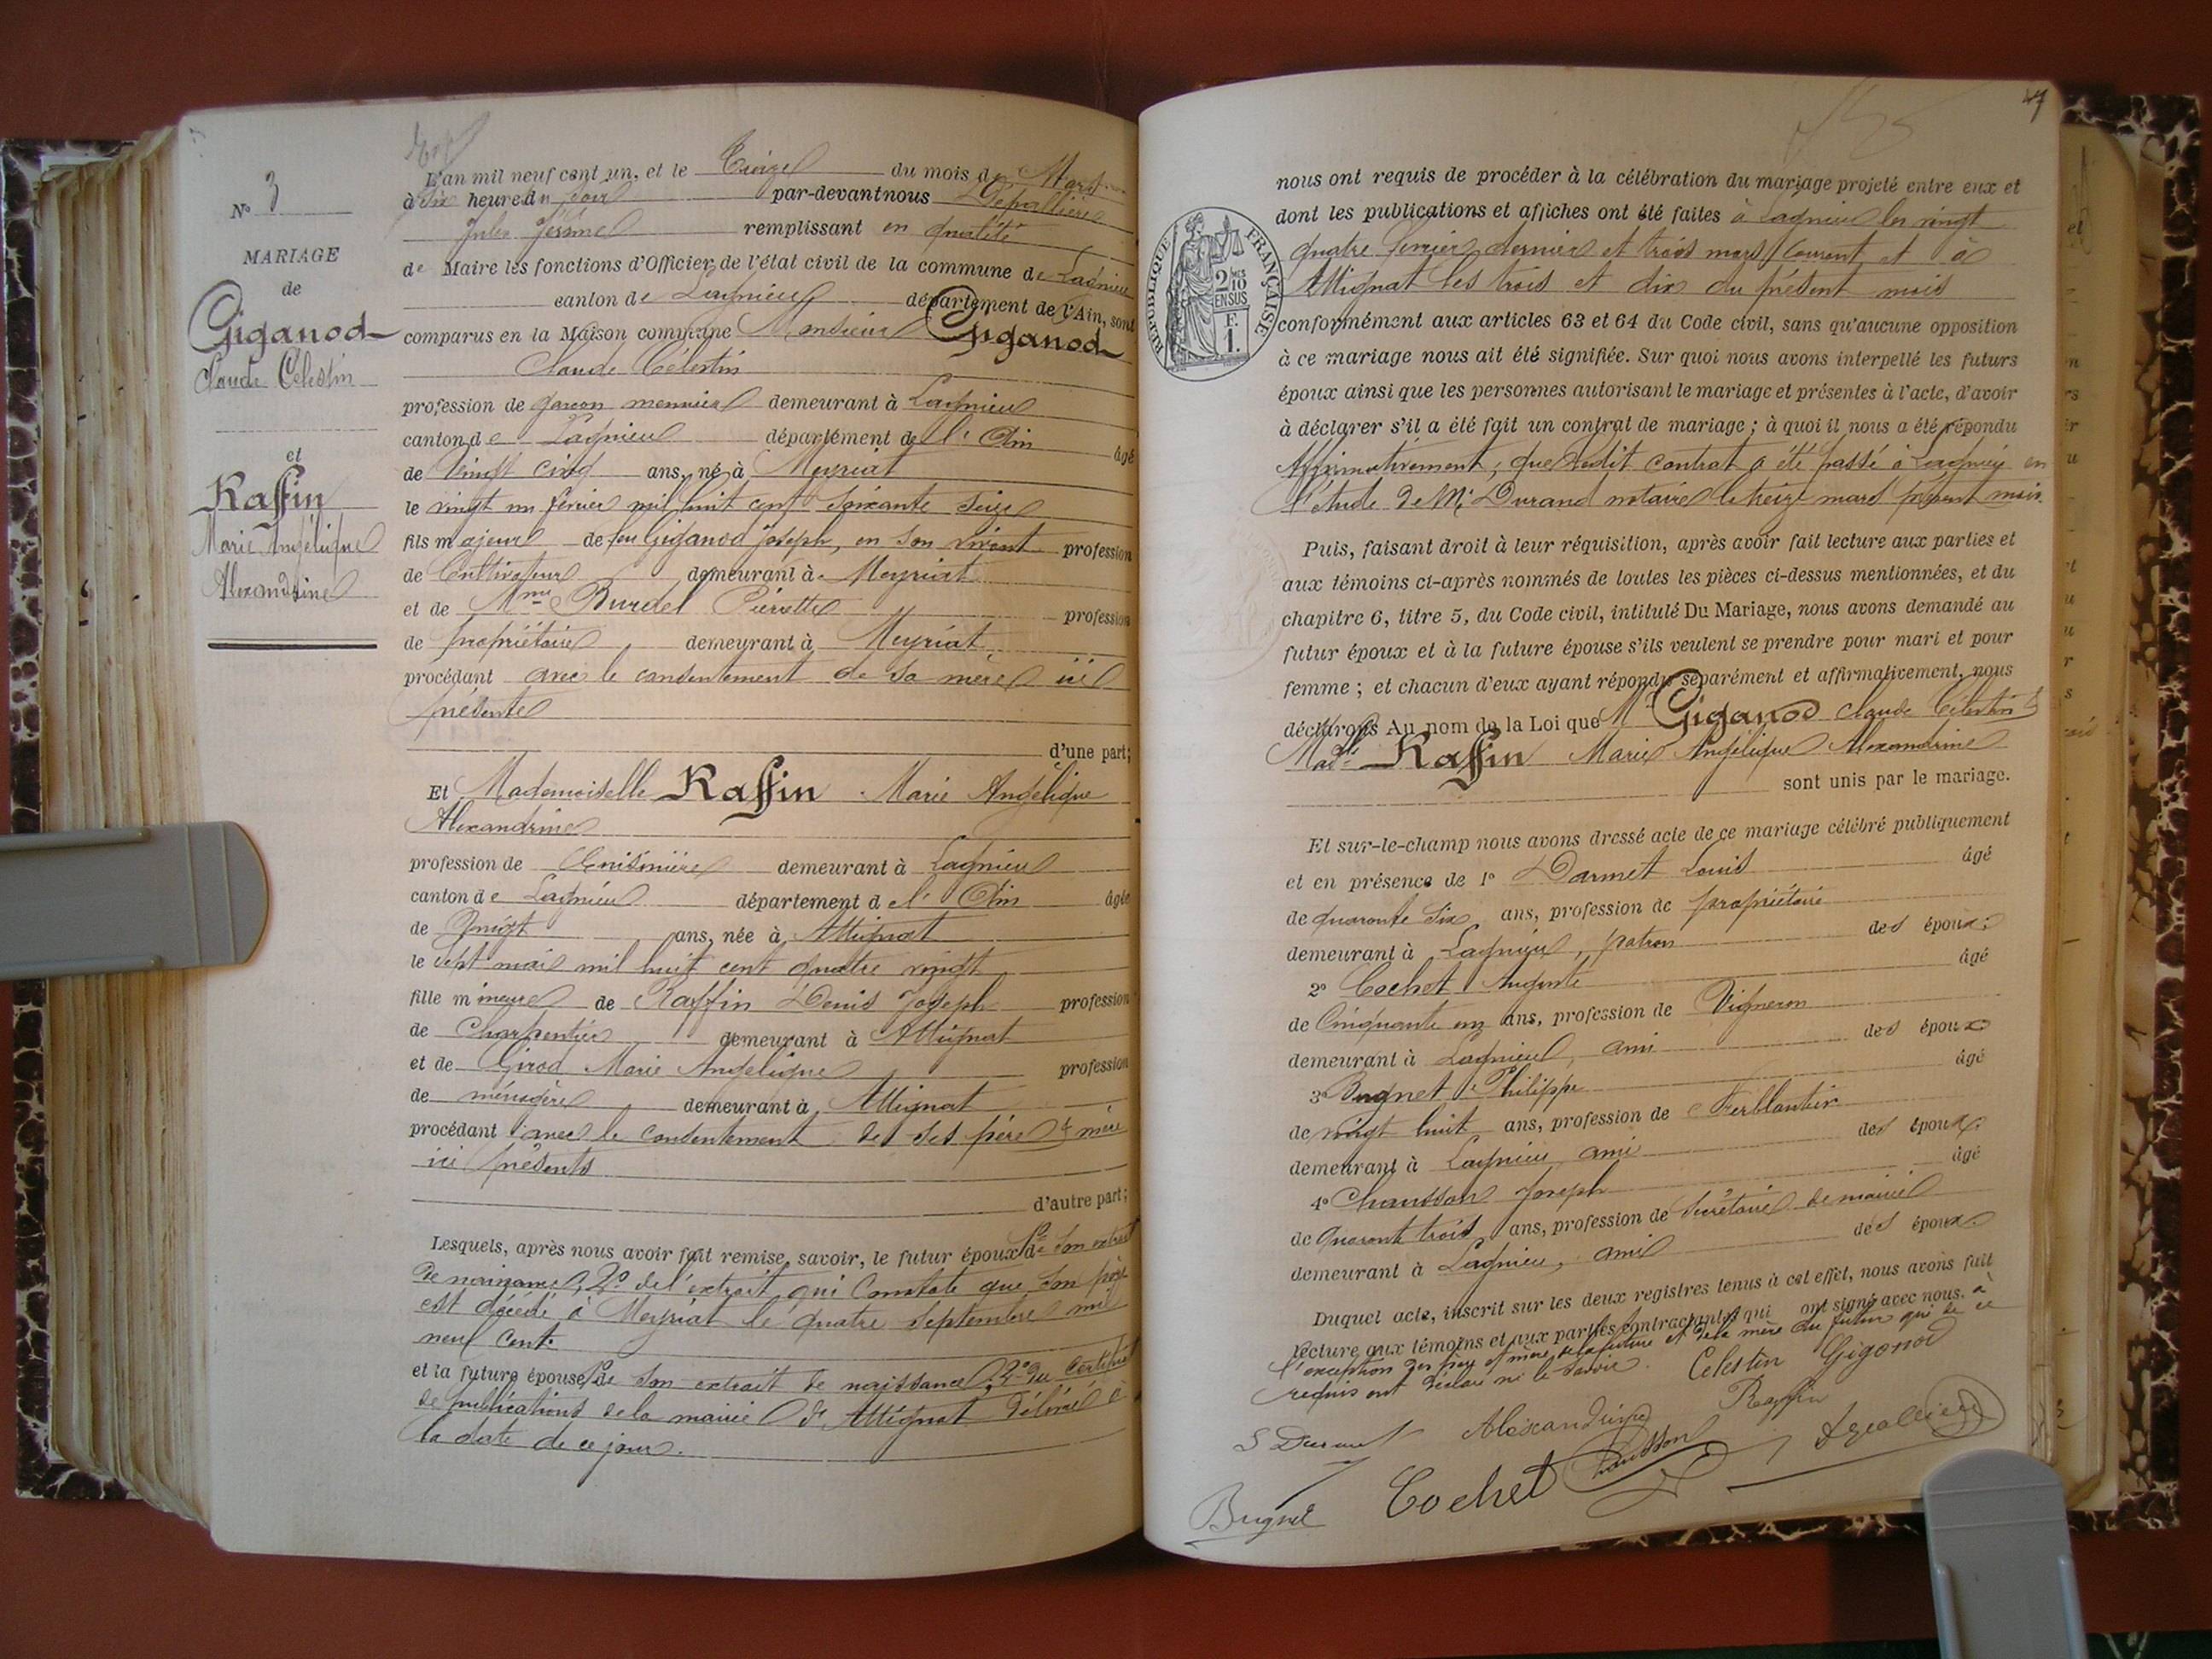 N° 3
MARIAGE
de
Giganod
Claude Célestin
et
Raffin
Marie Angélique
Alexandrine
L'an mil neuf cent un, et le Treize du mois de Mars
à Six heure du soir par-devant nous
Jules remplissant en qualité
de Maire les fonctions d'Officier de l'état civil de la commune de Lagnieu
canton de Lagnieu département de l'Ain, sont
comparus en la Maison commune Monsieur Giganod
Claude Célestin
profession de garçon meunier demeurant à Lagnieu
canton de Lagnieu département de l'Ain âgé
de Vingt cinq ans, né à Meyriat
le vingt un février mil huit cent soixante seize
fils majeur de feu Giganod Joseph, en son vivant profession
de Cultivateur demeurant à Meyriat
et de Mme Burdel Pierrette profession
de propriétaire demeurant à Meyriat,
procédant avec le consentement de sa mère ici
présente
d'une part;
Et Mademoiselle Raffin Marie Angélique
Alexandrine
profession de Cuisinière demeurant à Lagnieu
canton de Lagnieu département de l'Ain âgée
de Vingt ans, née à Attignat
le sept mai mil huit cent quatre vingt
fille mineure de Raffin Denis Joseph profession
de Charpentier demeurant à Attignat
et de Girod Marie Angélique profession
de ménagère demeurant à Attignat
procédant avec le consentement de ses père & mère
ici présents
d'autre part;
Lesquels, après nous avoir fait remise, savoir, le futur époux 1° de son extrait
de naissance, 2° de l'extrait qui constate que son père
est décédé à Meyriat le quatre septembre mil
neuf cent.
et la future épouse 1° de son extrait de naissance, 2° du certificat
de publications de la mairie d'Attignat délivré à
la date de ce jour.
47
RÉPUBLIQUE FRANÇAISE
2/10 EN SUS
F. 1.
nous ont requis de procéder à la célébration du mariage projeté entre eux et
dont les publications et affiches ont été faites à Lagnieu les vingt
quatre février dernier et trois mars courant et à
Attignat les trois et dix du présent mois
conformément aux articles 63 et 64 du Code civil, sans qu'aucune opposition
à ce mariage nous ait été signifiée. Sur quoi nous avons interpellé les futurs
époux ainsi que les personnes autorisant le mariage et présentes à l'acte, d'avoir
à déclarer s'il a été fait un contrat de mariage; à quoi il nous a été répondu
Affirmativement, que ledit contrat a été passé à Lagnieu en
l'étude de Me Durand notaire le treize mars présent mois.
Puis, faisant droit à leur réquisition, après avoir fait lecture aux parties et
aux témoins ci-après nommés de toutes les pièces ci-dessus mentionnées, et du
chapitre 6, titre 5, du Code civil, intitulé Du Mariage, nous avons demandé au
futur époux et à la future épouse s'ils veulent se prendre pour mari et pour
femme; et chacun d'eux ayant répondu séparément et affirmativement, nous
déclarons Au nom de la Loi que Mr Giganod Claude Célestin &
Madlle Raffin Marie Angélique Alexandrine
sont unis par le mariage.
Et sur-le-champ nous avons dressé acte de ce mariage célébré publiquement
et en présence de 1° Darmet Louis âgé
de quarante six ans, profession de propriétaire
demeurant à Lagnieu, patron des époux;
2° Cochet Auguste âgé
de Cinquante un ans, profession de Vigneron
demeurant à Lagnieu, ami des époux
3° Bugnet Philippe âgé
de vingt huit ans, profession de Ferblantier
demeurant à Lagnieu ami des époux;
4° Chausson Joseph âgé
de Quarante trois ans, profession de Secrétaire de mairie
demeurant à Lagnieu, ami des époux.
Duquel acte, inscrit sur les deux registres tenus à cet effet, nous avons fait
lecture aux témoins et aux parties contractantes qui ont signé avec nous. à
l'exception des père et mère de la future et de la mère du futur qui de ce
requis ont déclaré ne le savoir. Celestin Giganod
Alexandrine Raffin
Chausson
Cochet
Bugnet